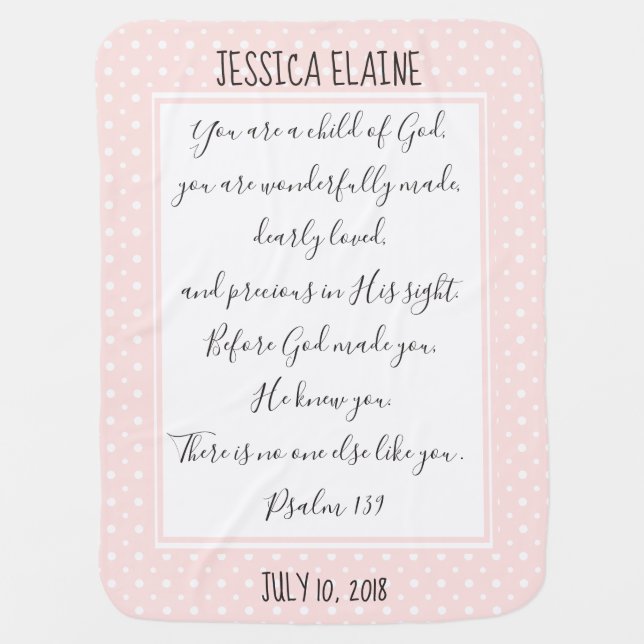 JESSICA ELAINE
You are a child of God,
you are wonderfully made,
dearly loved,
and precious in His sight.
Before God made you,
He knew you.
There is no one else like you.
Psalm 139
JULY 10, 2018